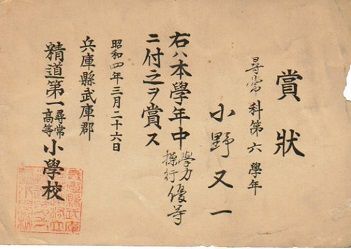 賞狀
尋常科第六學年
小野又一
右ハ本學年中學力操行優等
ニ付之ヲ賞ス
昭和四年三月二十六日
兵庫縣武庫郡
精道第一尋常高等小學校